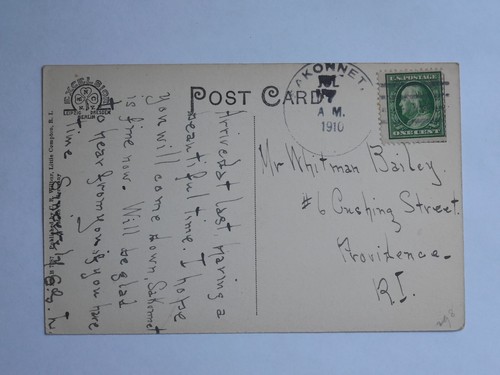 EXCELSIOR
LEIPZIG DRESDEN
BERLIN
POST CARD
AKONNET
JUL
A M.
1910
U.S. POSTAGE
ONE CENT
Arrived at last having a
beautiful time. I hope
you will come down, Sakonnet
is fine now. Will be glad
to hear from you if you have
time
Mr Whitman Bailey.
#6 Cushing Street.
Providence
R.I.
Little Compton, R. I.
298